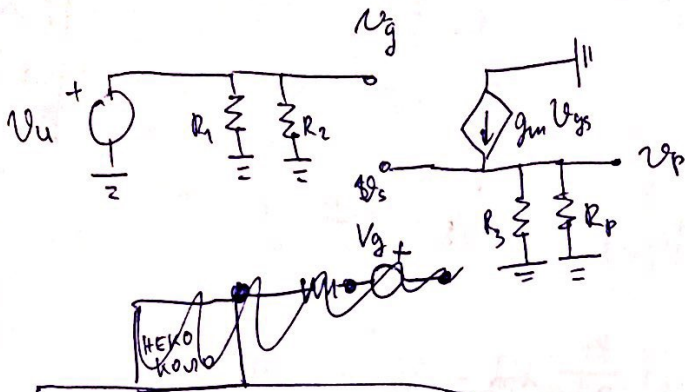 vg
+
vu
R1
R2
gm vgs
vs
vp
R3
Rp
Vg
+
НЕКО
КОЛО